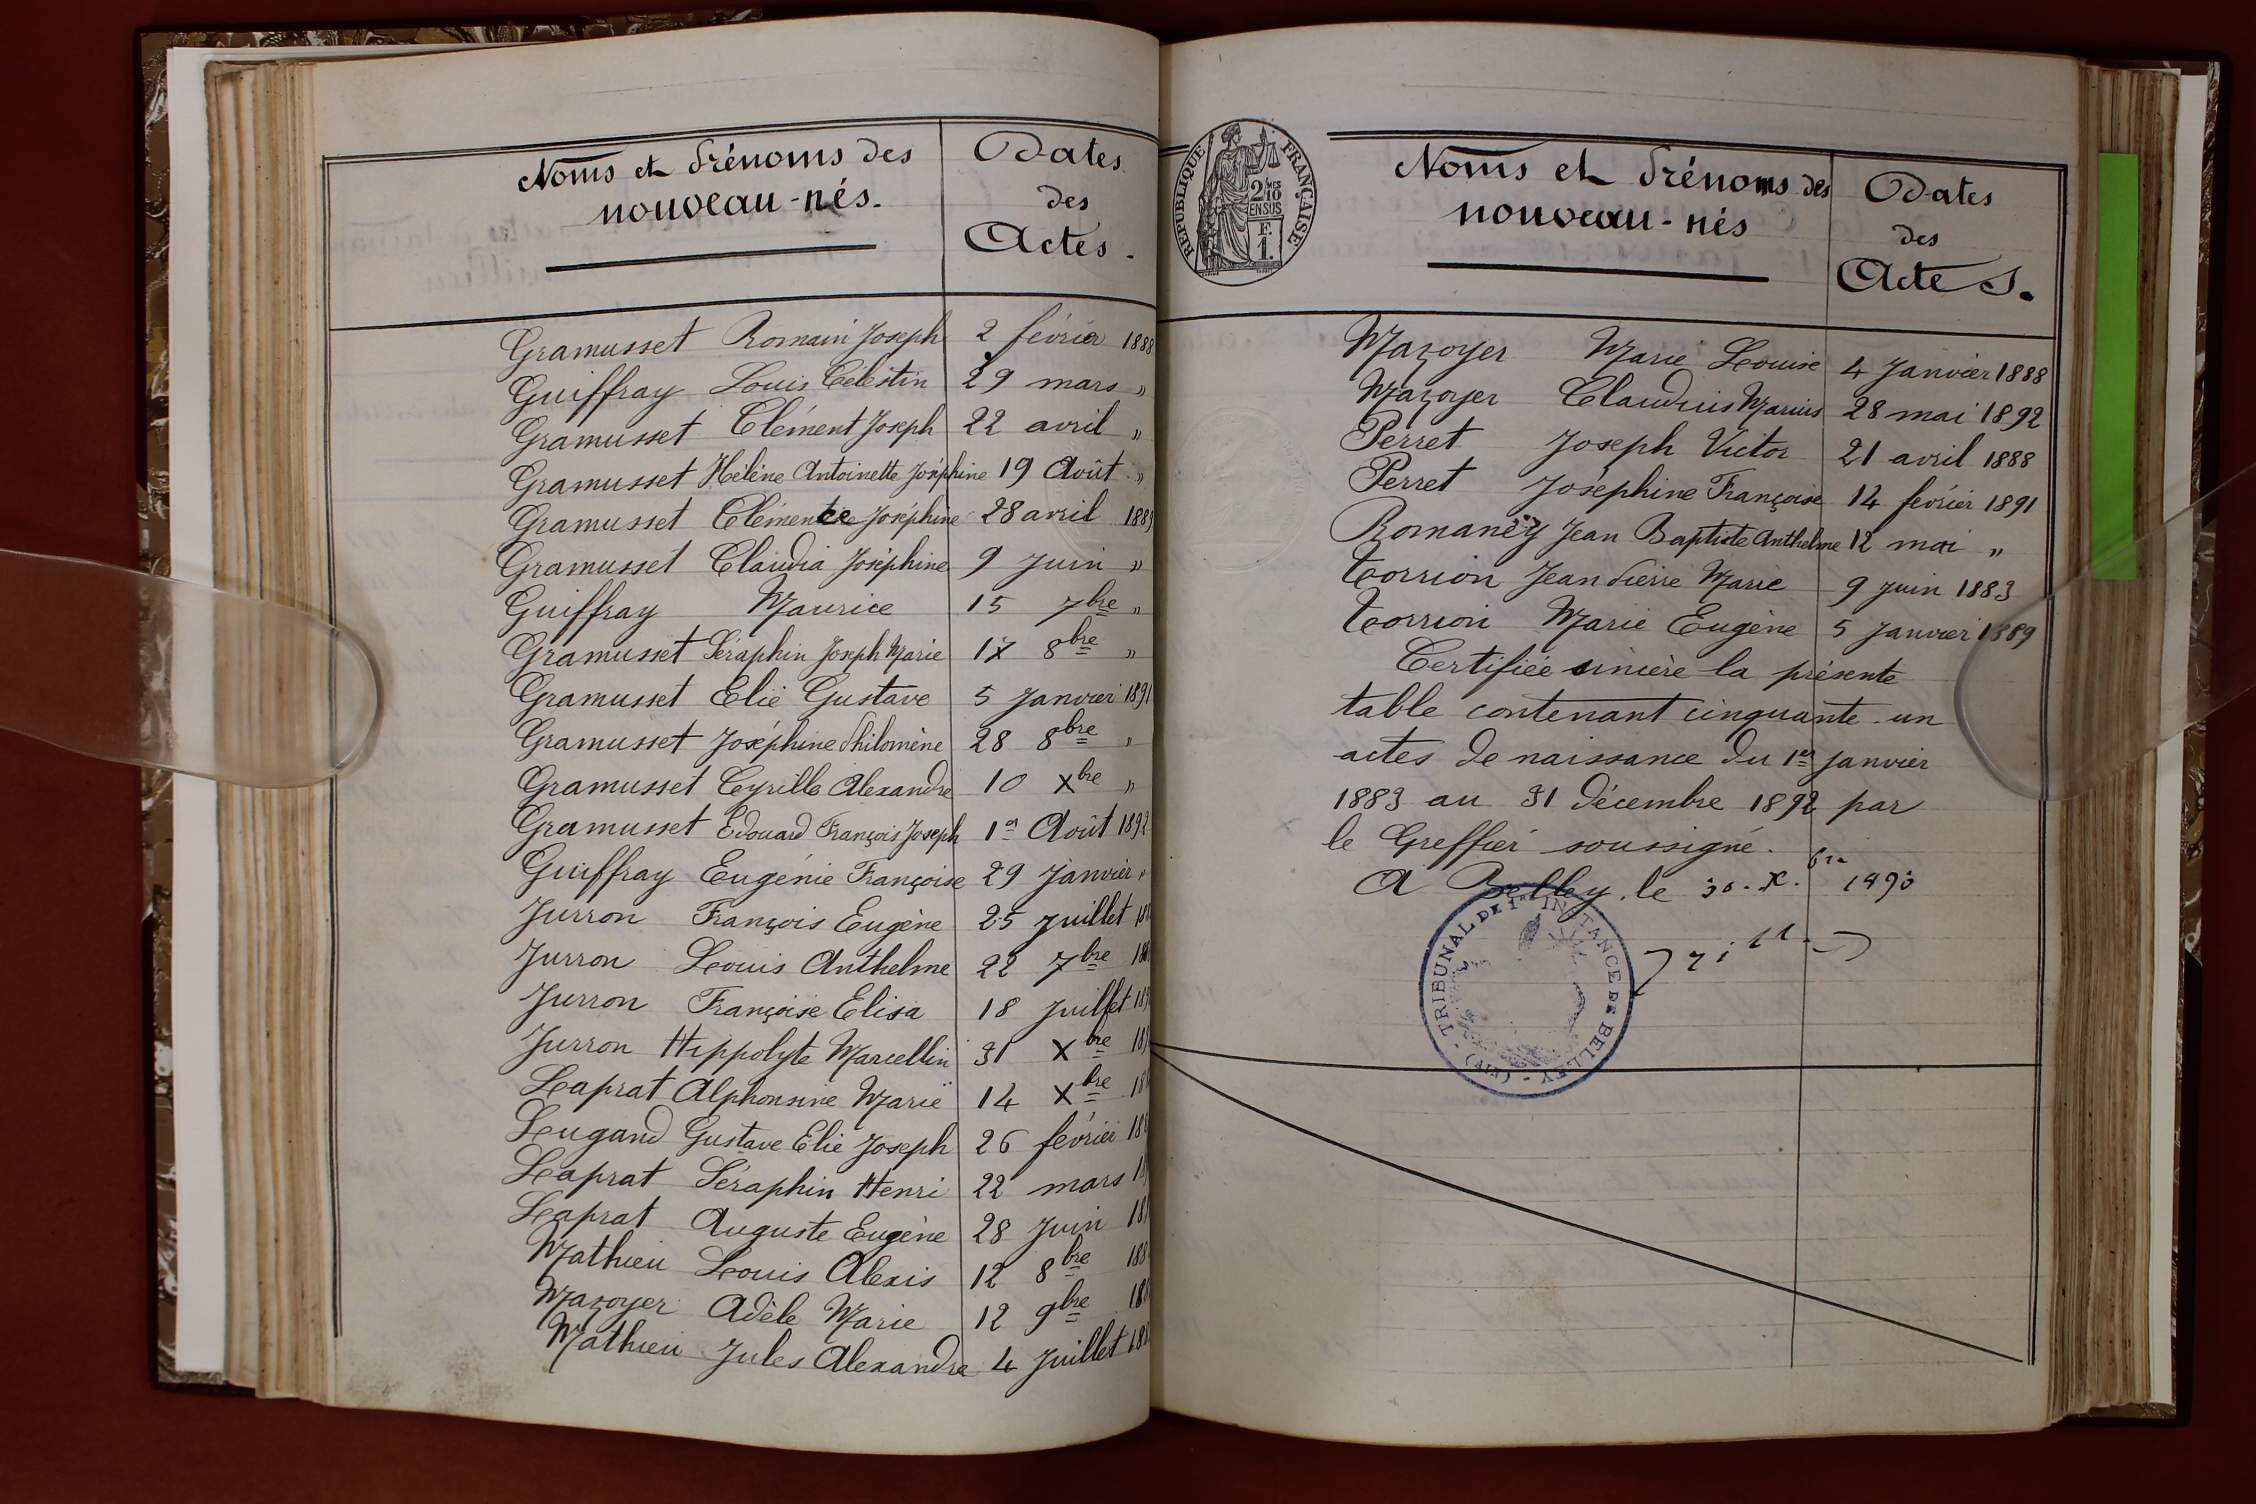 Noms et Prénoms des
nouveau-nés.
Dates
des
Actes.
Gramusset Romain Joseph 2 février 1888
Guiffray Louis Célestin 29 mars "
Gramusset Clément Joseph 22 avril "
Gramusset Hélène Antoinette Joséphine 19 Août "
Gramusset Clémence Joséphine 28 avril 1889
Gramusset Claudia Joséphine 9 Juin "
Guiffray Maurice 15 7bre "
Gramusset Séraphin Joseph Marie 17 8bre "
Gramusset Elie Gustave 5 Janvier 1891
Gramusset Joséphine Philomène 28 8bre "
Gramusset Cyrille Alexandre 10 Xbre "
Gramusset Edouard François Joseph 1er Août 1892
Guiffray Eugénie Françoise 29 Janvier "
Jurron François Eugène 25 Juillet
Jurron Louis Anthelme 22 7bre
Jurron Françoise Elisa 18 Juillet
Jurron Hippolyte Marcellin 31 Xbre
Laprat Alphonsine Marie 14 Xbre
Lugand Gustave Elie Joseph 26 février
Laprat Séraphin Henri 22 mars
Laprat Auguste Eugène 28 Juin
Mathieu Louis Alexis 12 8bre
Mazoyer Adèle Marie 12 9bre
Mathieu Jules Alexandre 4 Juillet
RÉPUBLIQUE FRANÇAISE
2/10MES
EN SUS
F.
1.
Noms et Prénoms des
nouveau-nés
Dates
des
Actes.
Mazoyer Marie Louise 4 Janvier 1888
Mazoyer Claudius Marius 28 mai 1892
Perret Joseph Victor 21 avril 1888
Perret Joséphine Françoise 14 février 1891
Romaney Jean Baptiste Anthelme 12 mai "
Torrion Jean Pierre Marie 9 Juin 1883
Torrion Marie Eugène 5 Janvier 1889
Certifiée sincère la présente
table contenant cinquante-un
actes de naissance du 1er Janvier
1883 au 31 Décembre 1892 par
le Greffier soussigné.
A Belley, le 30. X.bre 1893
TRIBUNAL DE 1RE INSTANCE DE BELLEY
(AIN)